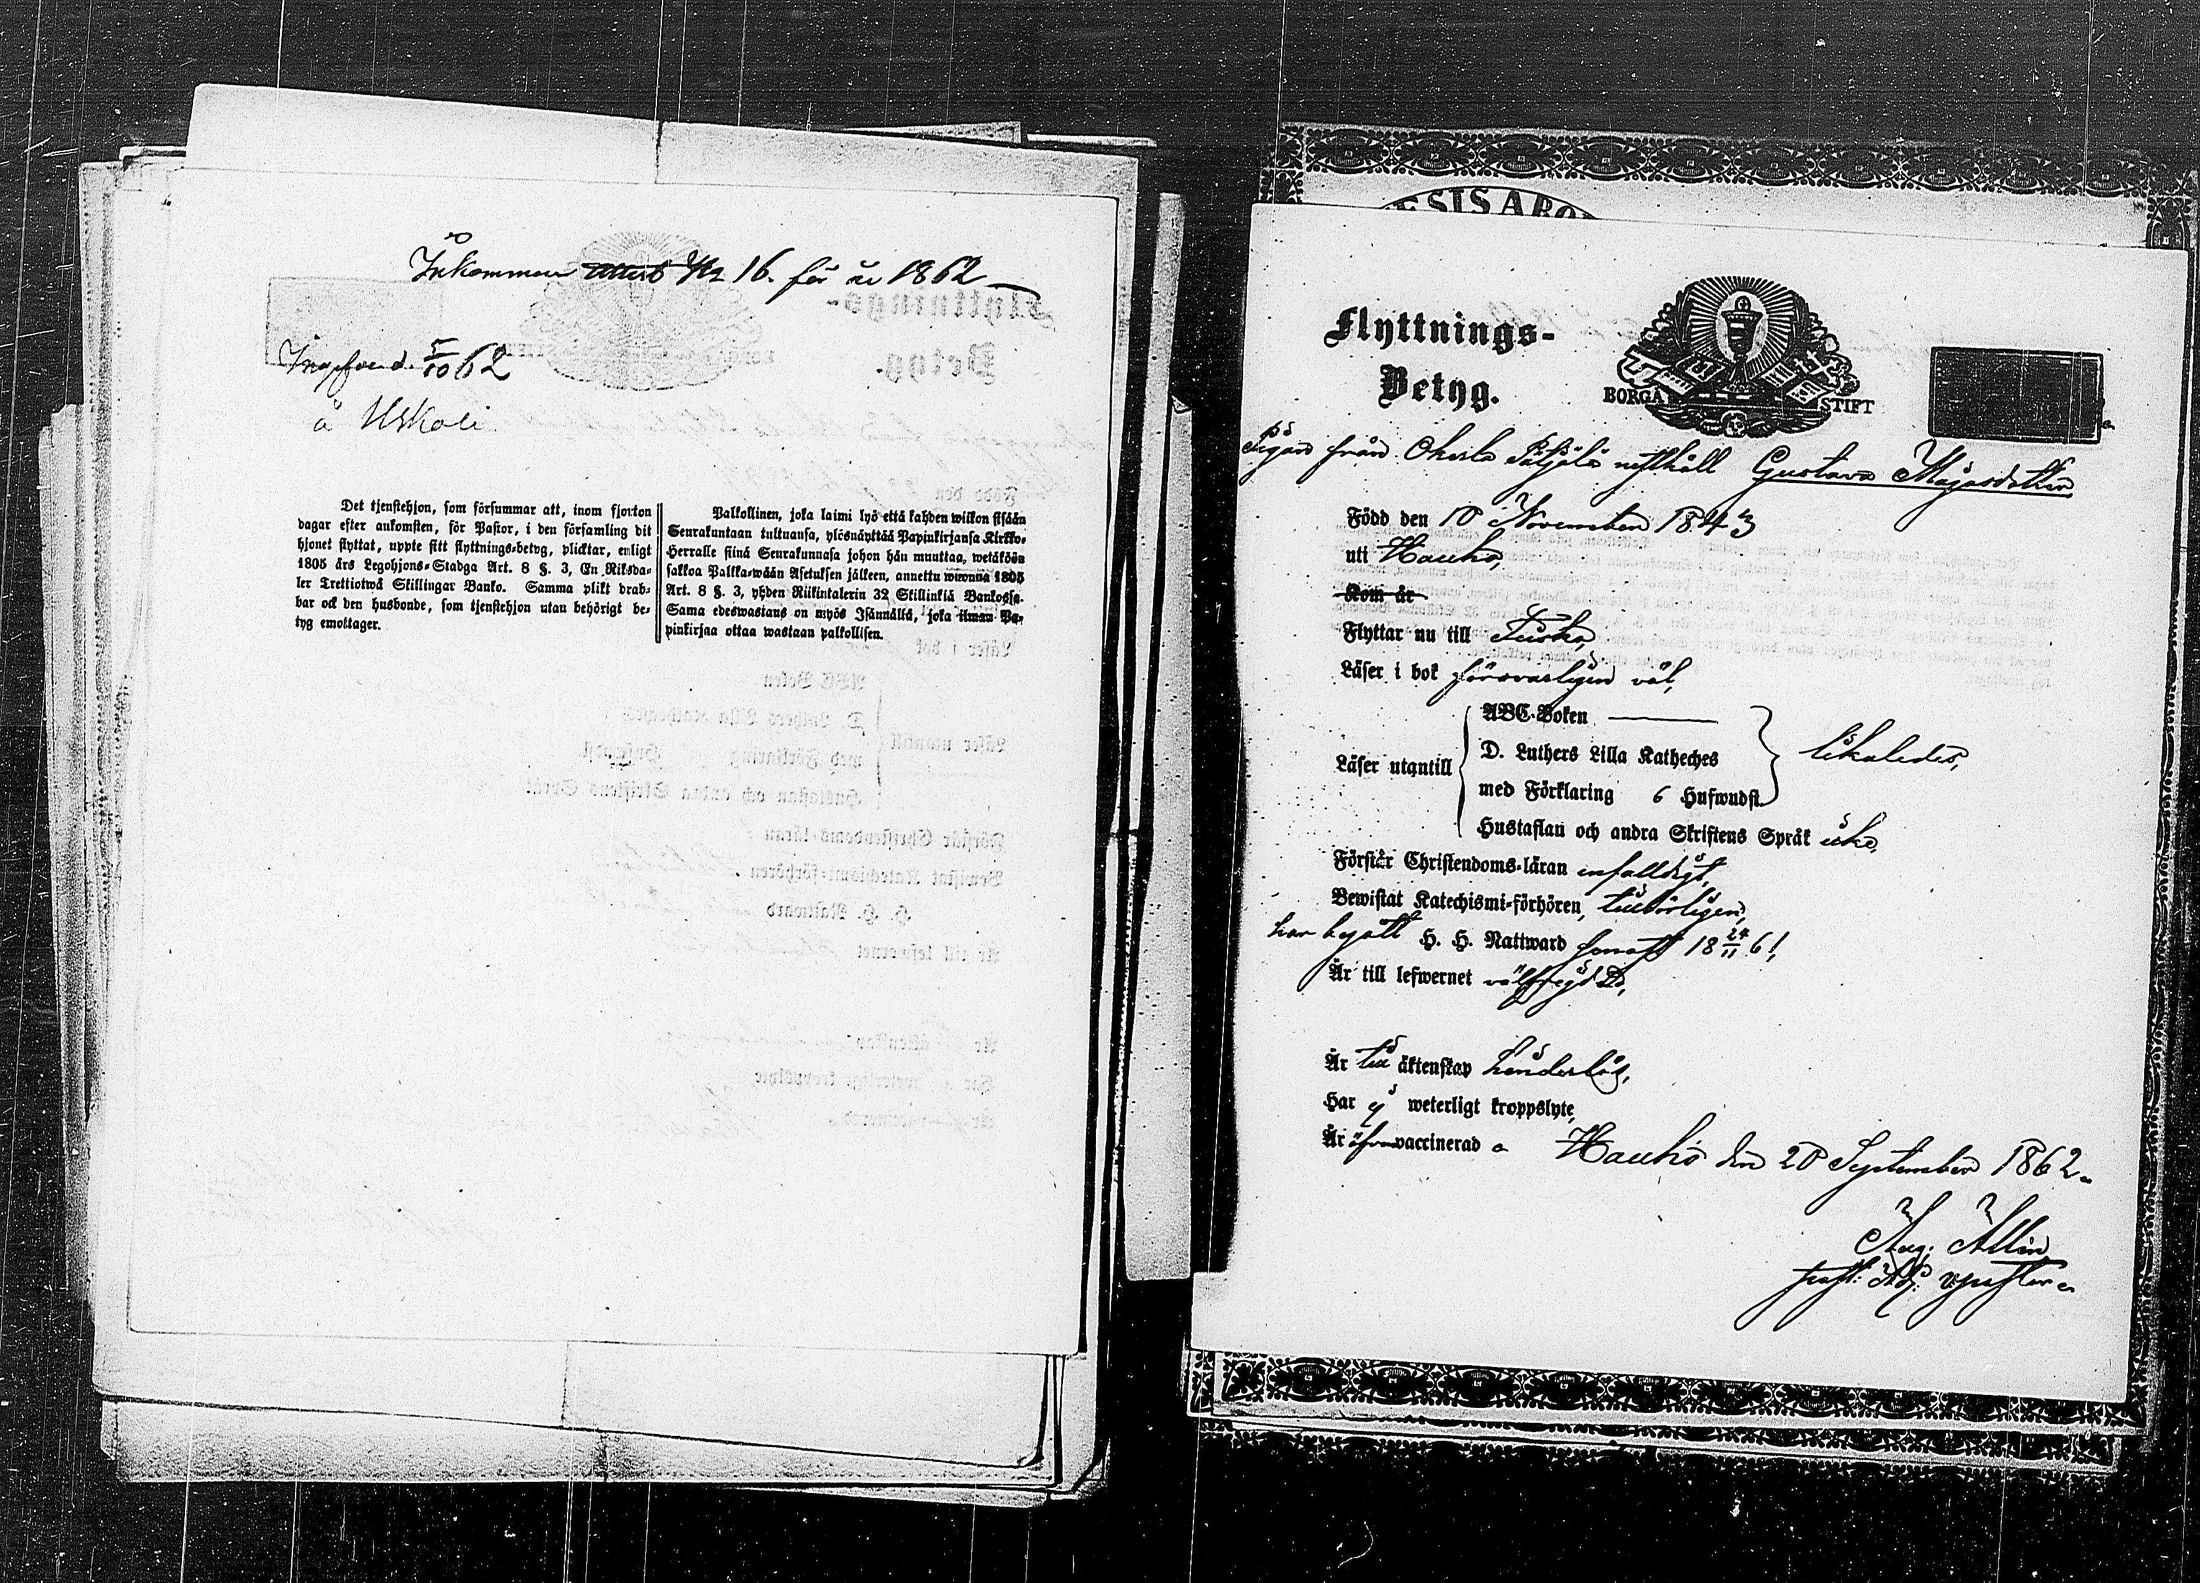 Inkommen attest No 16. för år 1862
Ingefwend. 5/10 62
å Uskali
Det tjenstehjon, som försummar att, inom fjorton
dagar efter ankomsten, för Pastor, i den församling dit
hjonet flyttat, uppte sitt flyttnings-betyg, plicktar, enligt
1805 års Legohjons-Stadga Art. 8 §. 3, En Riksda-
ler Trettiotwå Skillingar Banko. Samma plikt drab-
bar ock den husbonde, som tjenstehjon utan behörigt be-
tyg emottager.
Palkollinen, joka laimi lyö että kahden wiikon sisään
Seurakuntaan tultuansa, ylösnäyttää Papinkirjansa Kirkko-
Herralle siinä Seurakunnasa johon hän muuttaa, wetäköön
sakkoa Palkka-wään Asetuksen jälkeen, annettu wuonna 1805
Art. 8 §. 3, yhden Riikintalerin 32 Skillinkiä Bankossa.
Sama edeswastaus on myös Isännällä, joka ilman Pa-
pinkirjaa ottaa wastaan palkollisen.
ESIS ABO
Flyttnings-
Betyg.
BORGÅ STIFT
Pigan från Okerla Pätjälä rusthåll Gustava Majasdotter
Född den 10 November 1843
uti Hauho,
Kom år
Flyttar nu till Tuulos,
Läser i bok försvarligen väl,
Läser utantill
ABC-Boken
D. Luthers Lilla Katheches
med Förklaring 6 Hufwudst.
likaledes,
Hustaflan och andra Skriftens Språk icke,
Förstår Christendoms-läran enfalldigt,
Bewistat Katechismi-förhören, tillbörligen,
har begått H. H. Nattward senast 18 24/11 61,
Är till lefwernet välfrejdad,
Är till äktenskap hinderlös,
Har ej weterligt kroppslyte,
Är äfven vaccinerad
Hauho den 20 September 1862.
Aug. Allén
past: Adj: v pastor